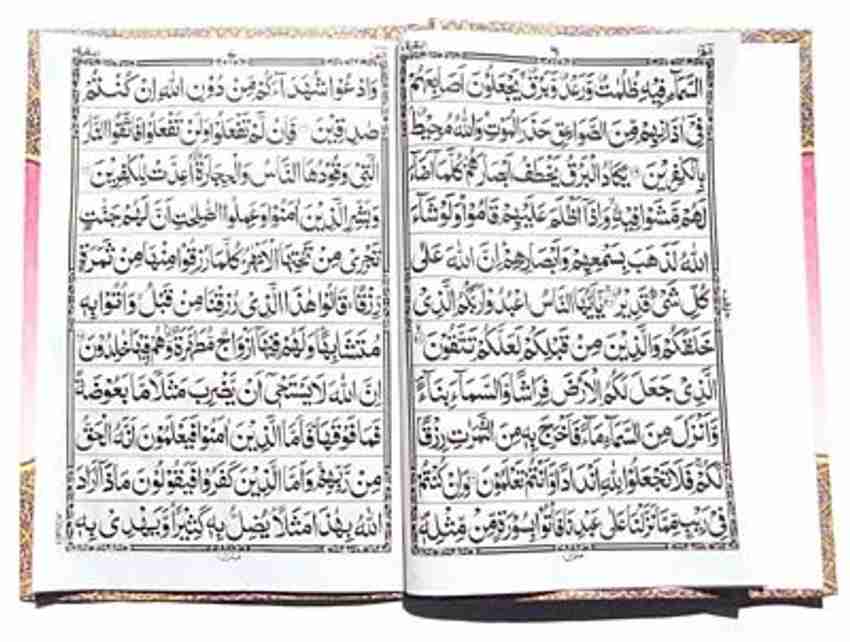 ٦
السَّمَآءِ فِيْهِ ظُلُمٰتٌ وَّرَعْدٌ وَّبَرْقٌ يَجْعَلُوْنَ اَصَابِعَهُمْ
فِيْٓ اٰذَانِهِمْ مِّنَ الصَّوَاعِقِ حَذَرَ الْمَوْتِ وَاللّٰهُ مُحِيْطٌۢ
بِالْكٰفِرِيْنَ يَكَادُ الْبَرْقُ يَخْطَفُ اَبْصَارَهُمْ كُلَّمَآ اَضَآءَ
لَهُمْ مَّشَوْا فِيْهِ وَاِذَآ اَظْلَمَ عَلَيْهِمْ قَامُوْا وَلَوْ شَآءَ
اللّٰهُ لَذَهَبَ بِسَمْعِهِمْ وَاَبْصَارِهِمْ اِنَّ اللّٰهَ عَلٰى
كُلِّ شَيْءٍ قَدِيْرٌ يٰٓاَيُّهَا النَّاسُ اعْبُدُوْا رَبَّكُمُ الَّذِيْ
خَلَقَكُمْ وَالَّذِيْنَ مِنْ قَبْلِكُمْ لَعَلَّكُمْ تَتَّقُوْنَ
الَّذِيْ جَعَلَ لَكُمُ الْاَرْضَ فِرَاشًا وَّالسَّمَآءَ بِنَآءً
وَّاَنْزَلَ مِنَ السَّمَآءِ مَآءً فَاَخْرَجَ بِهٖ مِنَ الثَّمَرٰتِ رِزْقًا
لَّكُمْ فَلَا تَجْعَلُوْا لِلّٰهِ اَنْدَادًا وَّاَنْتُمْ تَعْلَمُوْنَ وَاِنْ كُنْتُمْ
فِيْ رَيْبٍ مِّمَّا نَزَّلْنَا عَلٰى عَبْدِنَا فَاْتُوْا بِسُوْرَةٍ مِّنْ مِّثْلِهٖ
٧
وَادْعُوْا شُهَدَآءَكُمْ مِّنْ دُوْنِ اللّٰهِ اِنْ كُنْتُمْ
صٰدِقِيْنَ فَاِنْ لَّمْ تَفْعَلُوْا وَلَنْ تَفْعَلُوْا فَاتَّقُوا النَّارَ
الَّتِيْ وَقُوْدُهَا النَّاسُ وَالْحِجَارَةُ اُعِدَّتْ لِلْكٰفِرِيْنَ
وَبَشِّرِ الَّذِيْنَ اٰمَنُوْا وَعَمِلُوا الصّٰلِحٰتِ اَنَّ لَهُمْ جَنّٰتٍ
تَجْرِيْ مِنْ تَحْتِهَا الْاَنْهٰرُ كُلَّمَا رُزِقُوْا مِنْهَا مِنْ ثَمَرَةٍ
رِّزْقًا قَالُوْا هٰذَا الَّذِيْ رُزِقْنَا مِنْ قَبْلُ وَاُتُوْا بِهٖ
مُتَشَابِهًا وَلَهُمْ فِيْهَآ اَزْوَاجٌ مُّطَهَّرَةٌ وَّهُمْ فِيْهَا خٰلِدُوْنَ
اِنَّ اللّٰهَ لَا يَسْتَحْيٖٓ اَنْ يَّضْرِبَ مَثَلًا مَّا بَعُوْضَةً
فَمَا فَوْقَهَا فَاَمَّا الَّذِيْنَ اٰمَنُوْا فَيَعْلَمُوْنَ اَنَّهُ الْحَقُّ
مِنْ رَّبِّهِمْ وَاَمَّا الَّذِيْنَ كَفَرُوْا فَيَقُوْلُوْنَ مَاذَآ اَرَادَ
اللّٰهُ بِهٰذَا مَثَلًا يُضِلُّ بِهٖ كَثِيْرًا وَّيَهْدِيْ بِهٖ